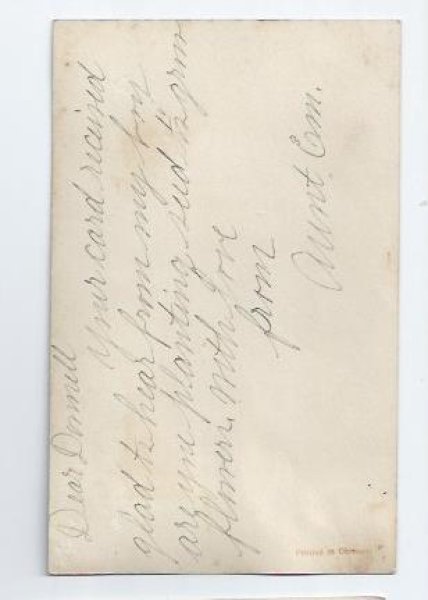 Dear Donnill
Your card recieved
glad to hear from my boy
are you planting seed to grow
flowers. With Love
from
Aunt Em.
Printed in Germany